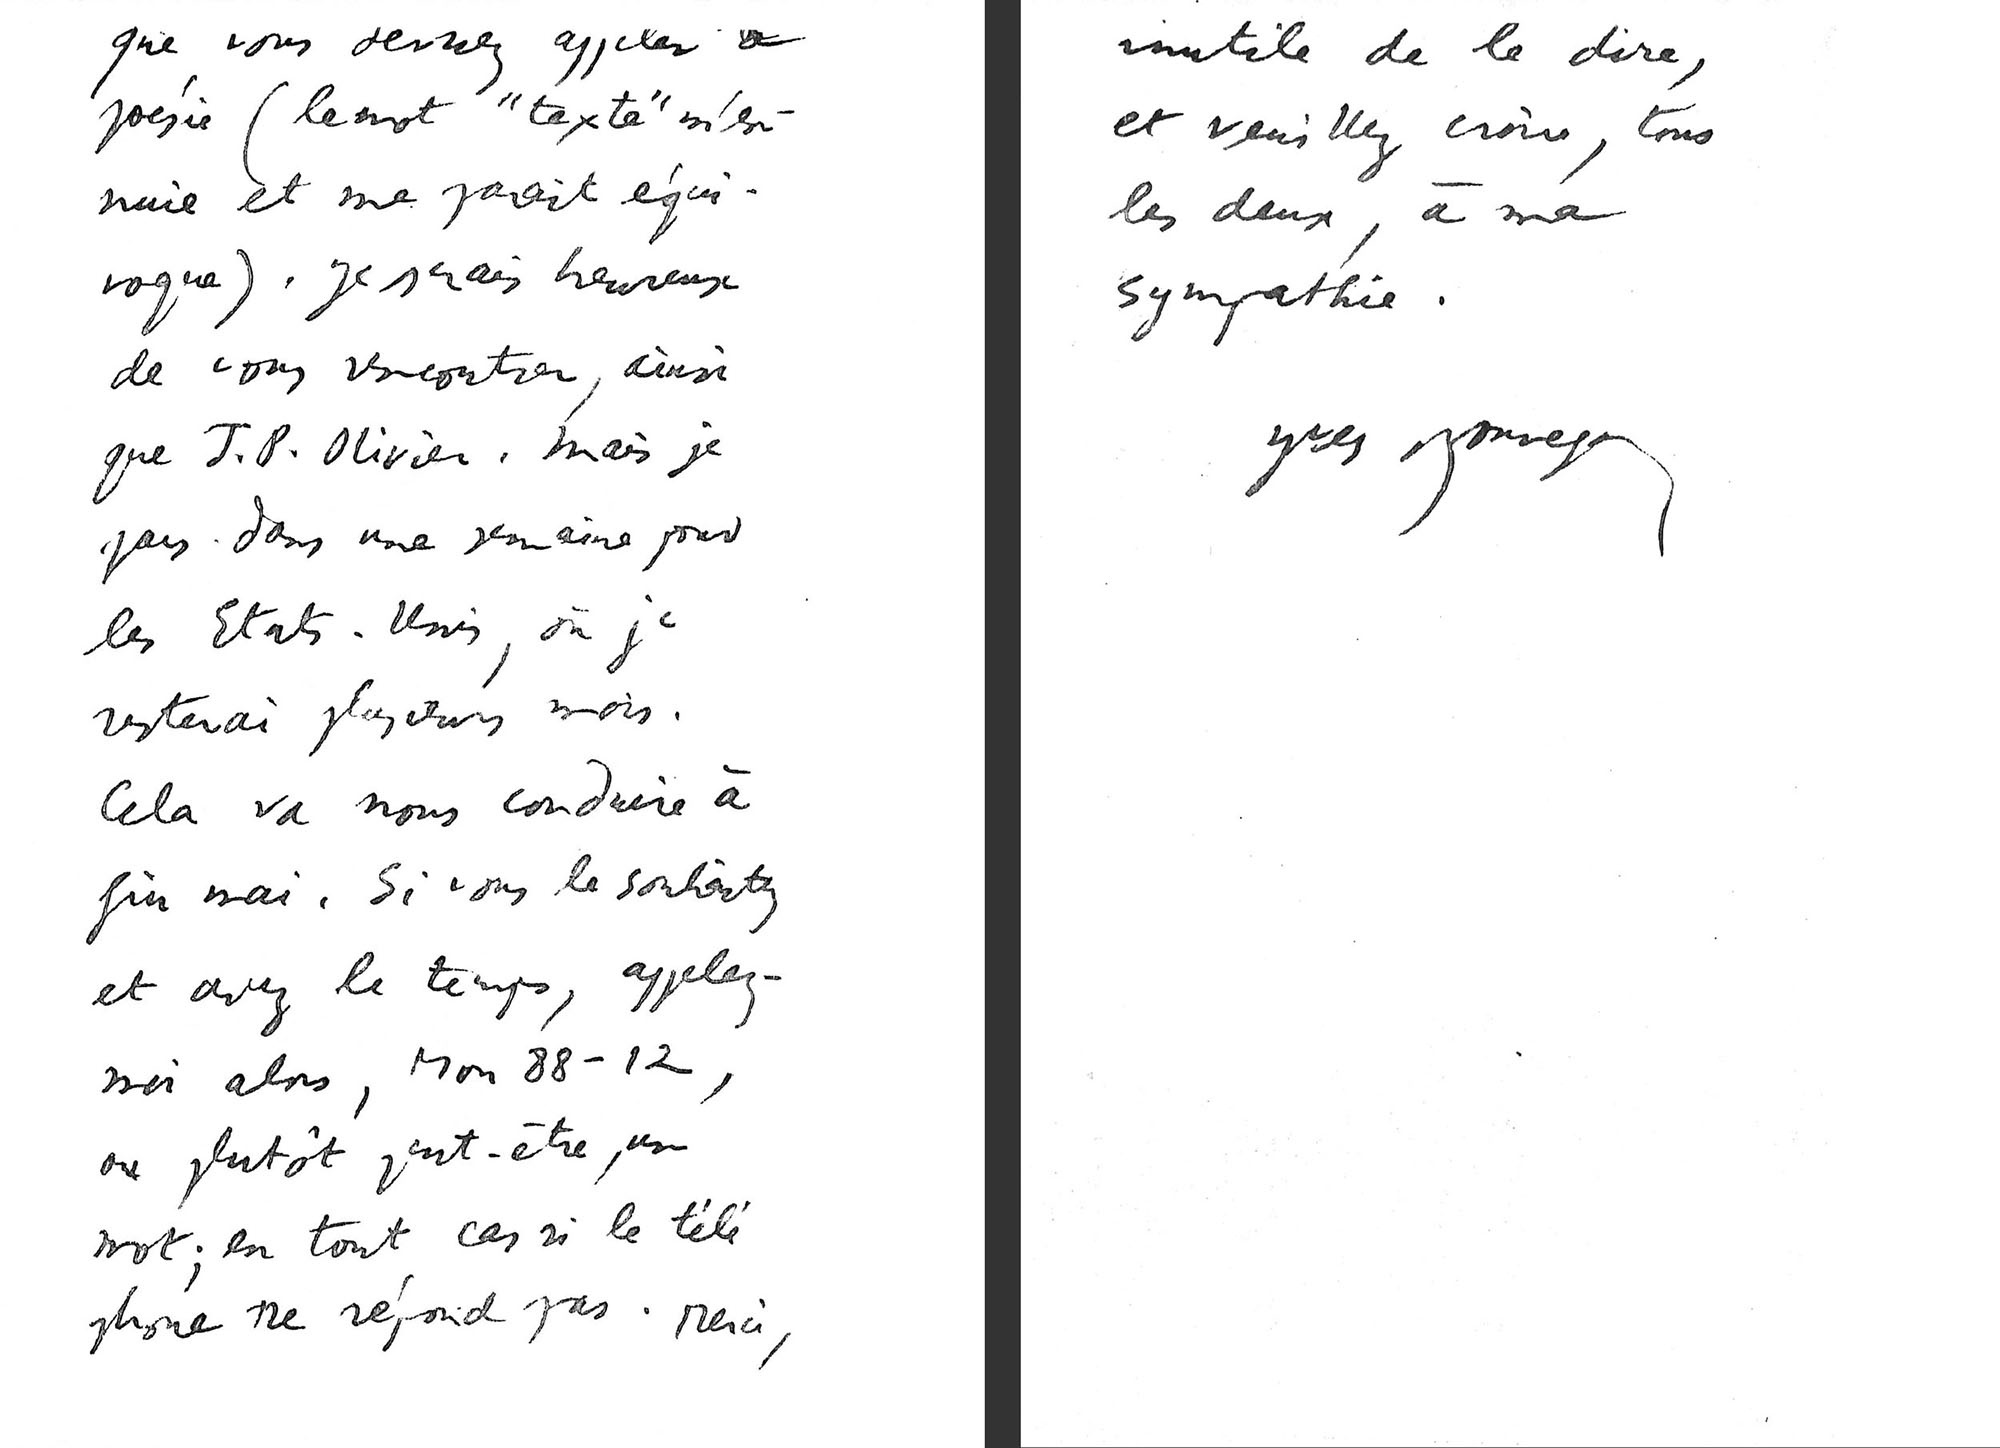 que vous devriez appeler
poésie (le mot "texte" m'en-
nuie et me paraît équi-
voque). Je serais heureux
de vous rencontrer, ainsi
que J.P. Olivier. Mais je
pars dans une semaine pour
les Etats-Unis, où je
resterai plusieurs mois.
Cela va nous conduire à
fin mai. Si vous le souhaitez
et avez le temps, appelez-
moi alors, Mon 88-12,
ou plutôt peut-être, un
mot; en tout cas si le télé
phone ne répond pas. Merci,
inutile de le dire,
et veuillez croire, tous
les deux, à ma
sympathie.
Yves Bonnefoy